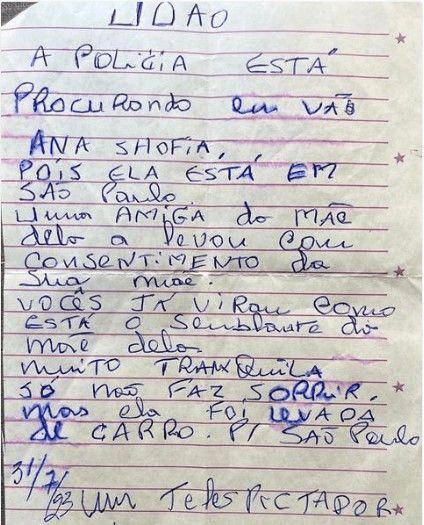 LIDAO
A POLICIA ESTÁ
PROCURONDO em VÃO
ANA SHOFIA,
POIS ELA ESTÁ EM
SÃO Paulo
Uma AMIGA do MÃE
dela a levou com
CONSENTIMENTO da
Sua mãe.
VOCÊS JÁ VIRAM COMO
ESTÁ O Semblante do
mãe dela
MUITO TRANQUILA
SÓ não FAZ SORRIR,
mas ela FOI LEVADA
de CARRO. P/ SÃO Paulo
31/7/23 Um TELESPICTADOR